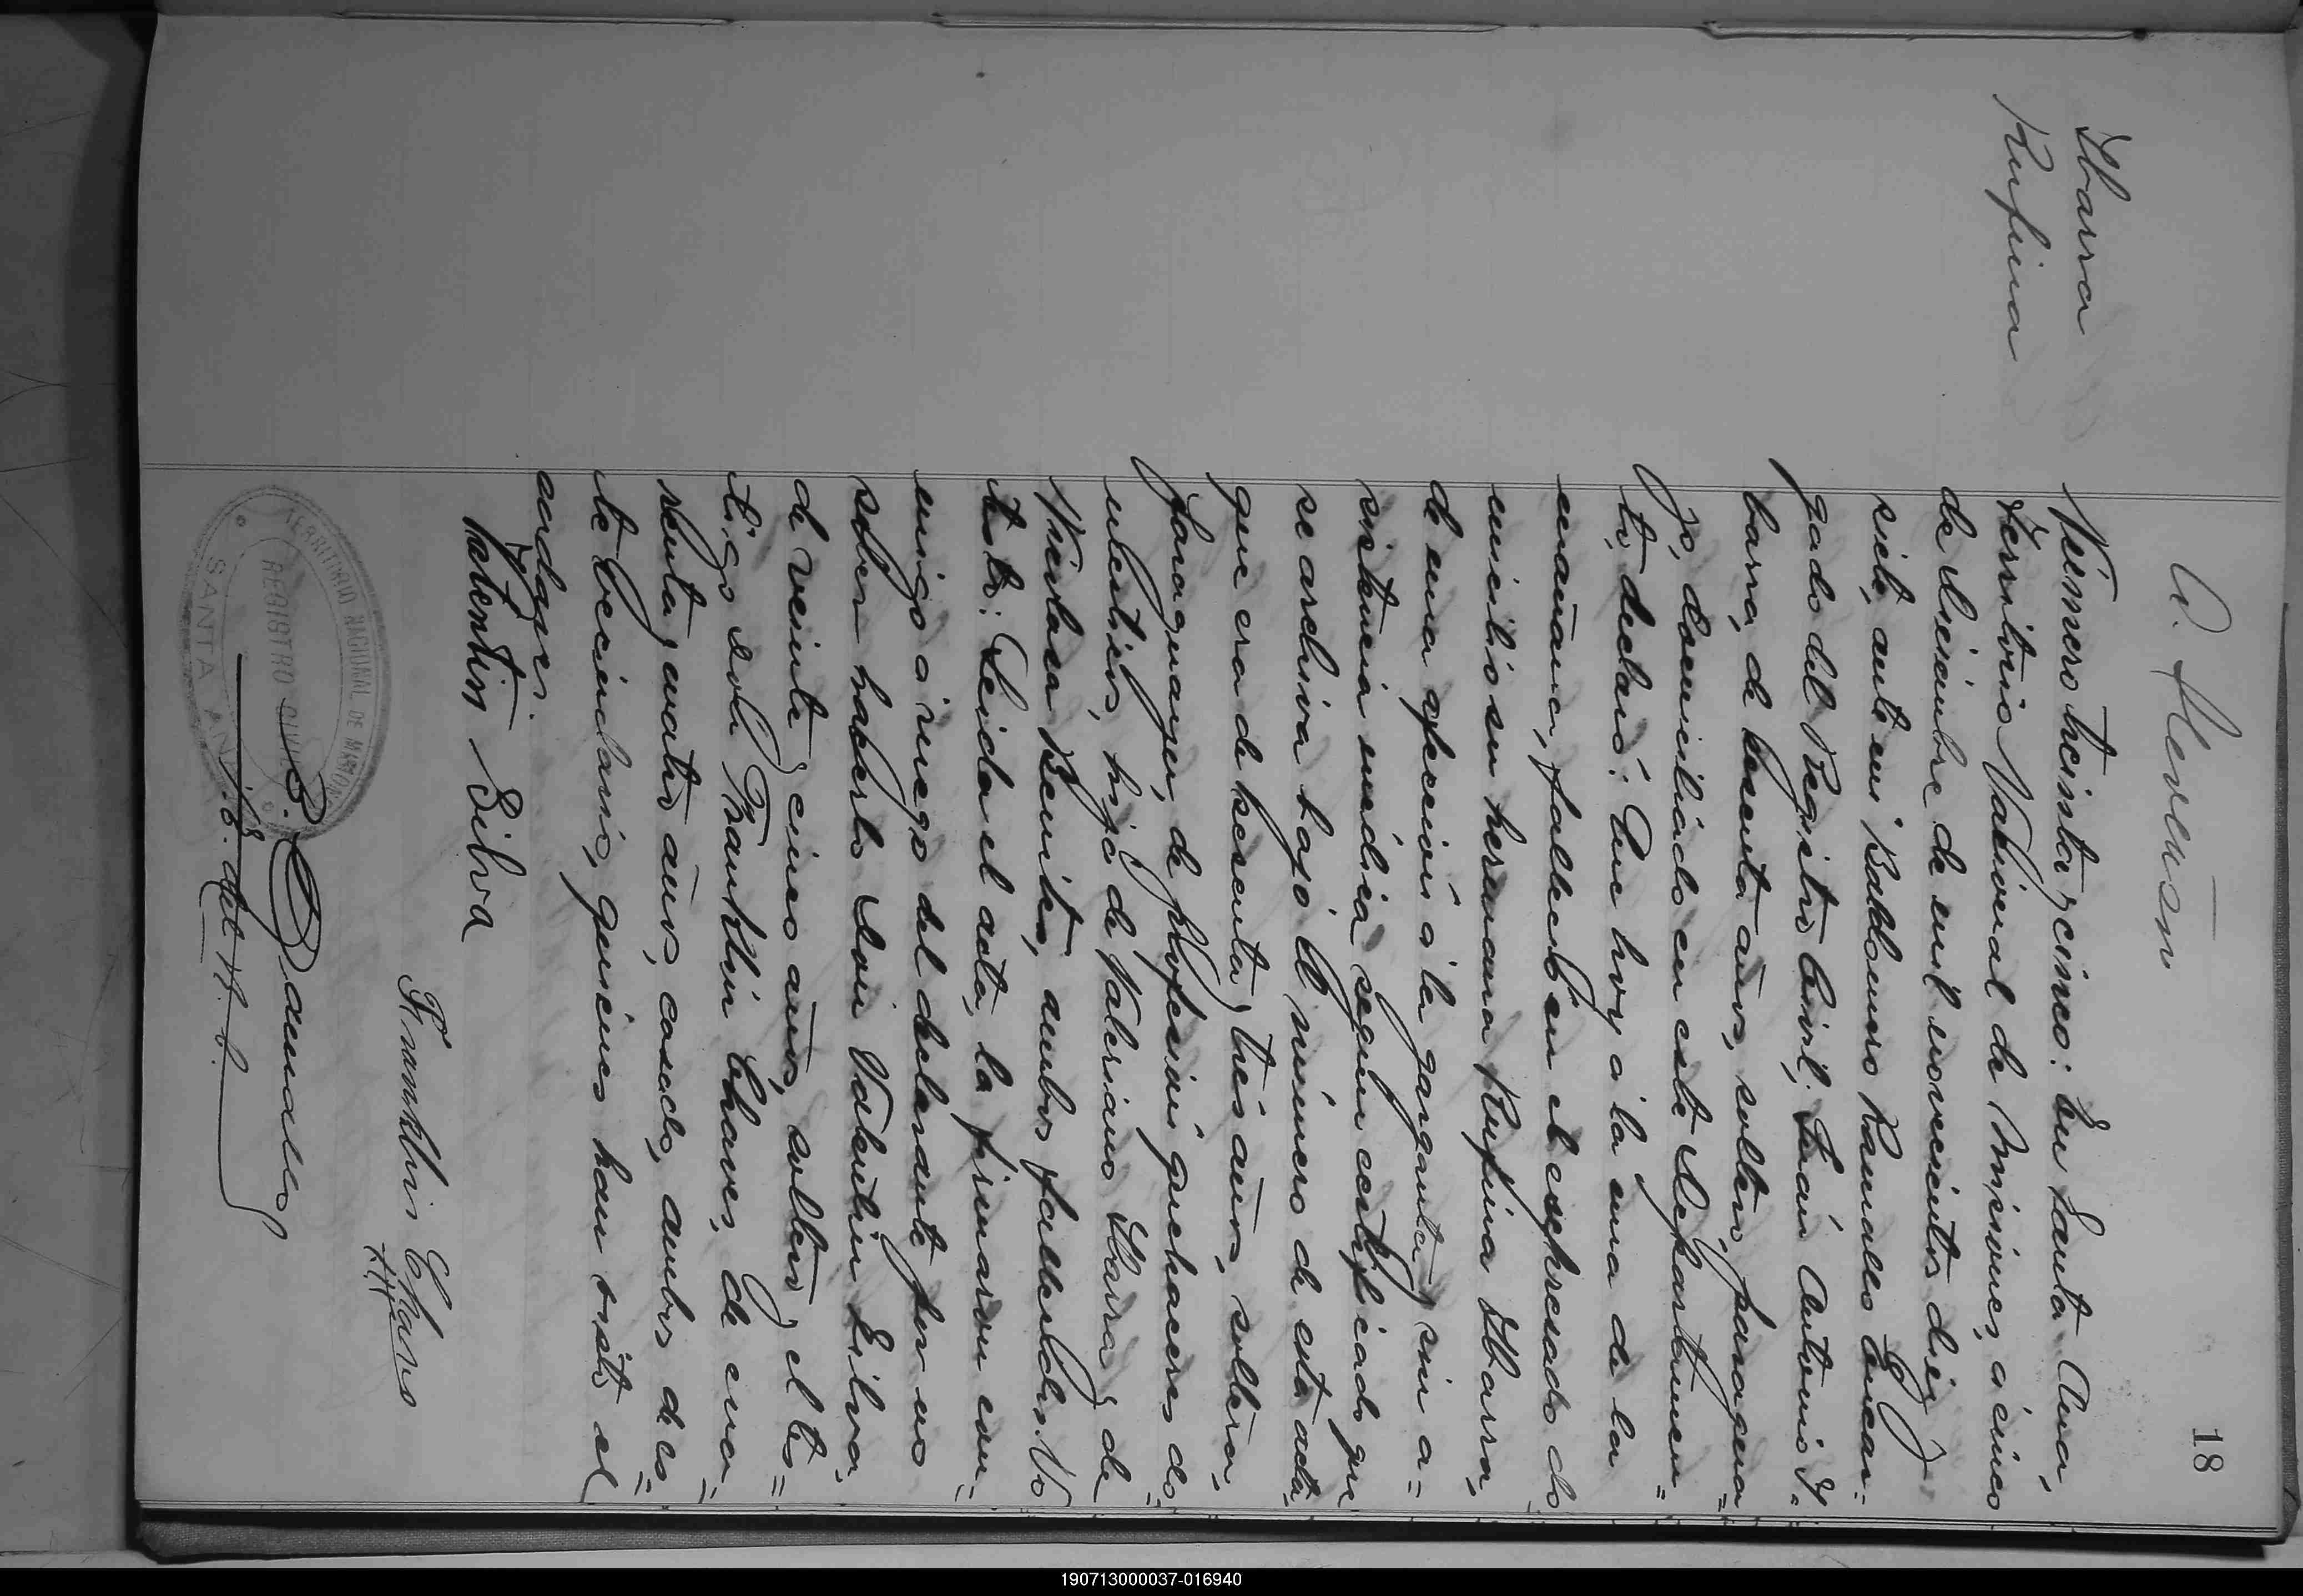 18
A. Mendusin
Ibarra
Rufina
Número treinta y cinco: En Santa Ana,
Territorio Nacional de Misiones, a cinco
de Diciembre de mil novecientos diez y
siete, ante mi Baldomero Ramallo Encar=
gado del Registro Civil; Juan Antonio Y=
barra, de sesenta años, soltero, paragua=
yo, domiciliado en este Departamen=
to, declaró: Que hoy a la una de la
mañana, falleció en el expresado do
micilio su hermana Rufina Ibarra,
de una afección a la garganta y sin a=
sistencia médica segun certificado que
se archiva bajo el número de esta acta,
que era de sesenta y tres años, soltera,
paraguaya, de profesión quehaceres do=
mesticos, hija de Valeriano Ibarra y de
Nicolasa Benites, ambos fallecidos. No
testó: Leida el acta, la firmaron con=
migo a ruego del declarante por no
saber hacerlo Don Valentin Silva,
de veinte y cinco años, soltero y el tes=
tigo Don Franklin Chaves, de cua=
renta y cuatro años, casado, ambos de es=
te vecindario, quienes han visto el
cadaver.
Valentin Silva
Franklin Chaves
B. Ramallo
E. del R. C.
TERRITORIO NACIONAL DE MISIONES
REGISTRO CIVIL
SANTA ANA
190713000037-016940